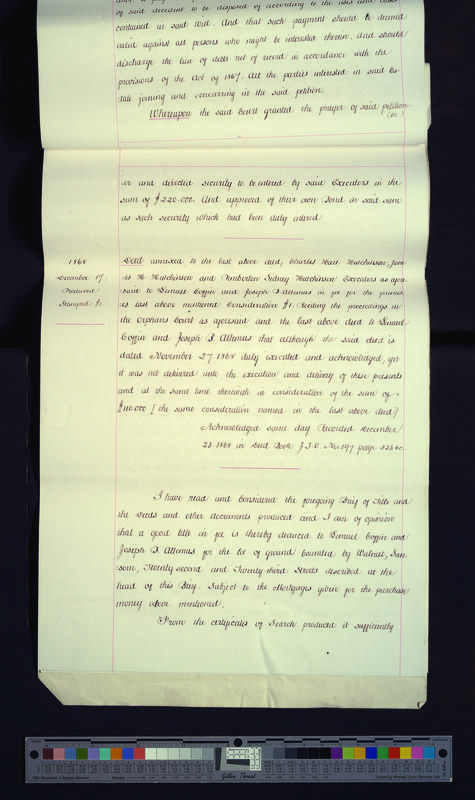 of said decedent to be disposed of according to the uses and trusts
contained in said will. And that such payment should be deemed
valid against all persons who might be interested therein. And should
discharge the lien of debts not of record in accordance with the
provisions of the Act of 1867. All the parties interested in said Es-
tate joining and concurring in the said petition.
Whereupon the said Court granted the prayer of said petition-
(er)
er and directed security to be entered by said Executors in the
sum of $220.000. And approved of their own bond in said sum
as such security which had been duly entered
1868
December 17
Produced
Stamped $1.
Deed annexed to the last above deed, Charles Hare Hutchinson, Jam-
es H Hutchinson and Pemberton Sidney Hutchinson Executors as afore
said to Lemuel Coffin and Joseph B Altemus in fee for the premises
as last above mentioned Consideration $1. Reciting the proceedings in
the Orphans Court as aforesaid and the last above deed to Lemuel
Coffin and Joseph B Altemus that although the said deed is
dated November 27. 1868 duly executed and acknowledged, yet
it was not delivered unto the execution and delivery of these presents
and at the same time therewith in consideration of the sum of
$110.000 [the same consideration named in the last above deed]
Acknowledged same day Recorded December
23. 1868 in Deed Book J.T.O. No. 197 page 326 &c.
I have read and considered the foregoing Brief of Title and
the Deeds and other documents produced and I am of opinion
that a good title in fee is thereby deduced to Lemuel Coffin and
Joseph B Altemus for the lot of ground bounded by Walnut, San-
som, Twenty-second and Twenty-third Streets described at the
head of this Brief. Subject to the Mortgages given for the purchase
money above mentioned.
From the certificates of Search produced it sufficiently
Golden Thread